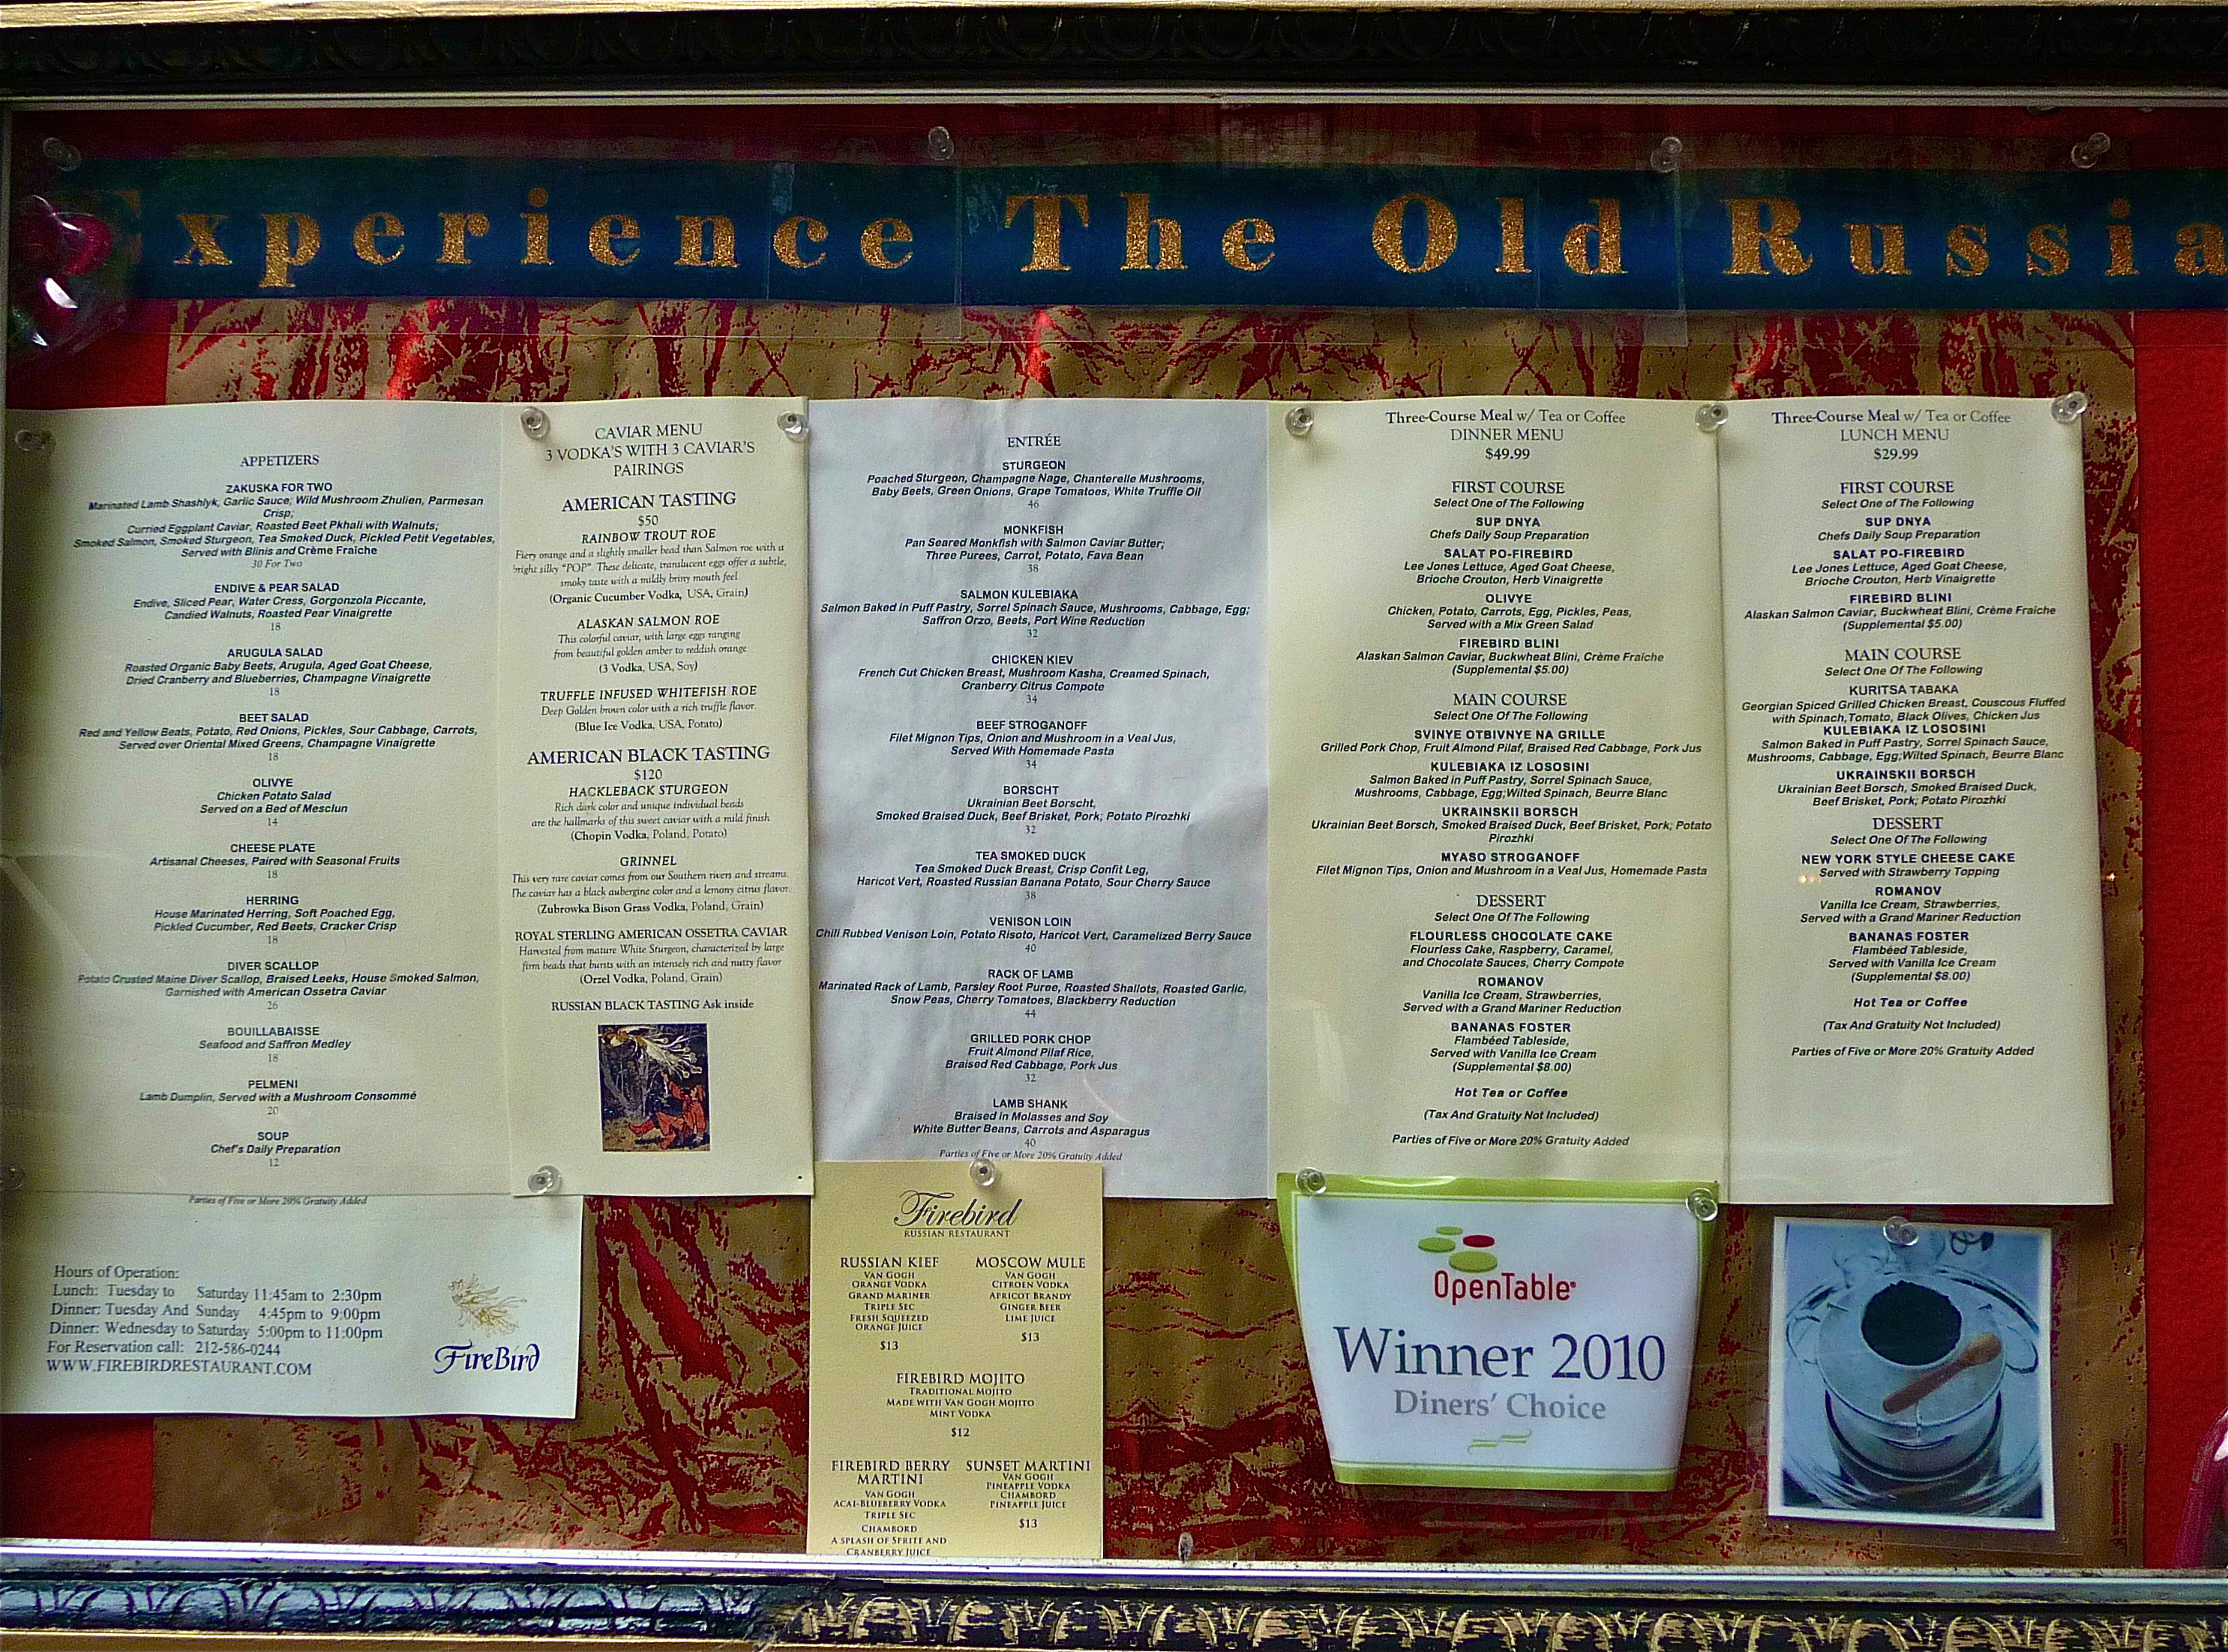 Experience The Old Russia
APPETIZERS
ZAKUSKA FOR TWO
Marinated Lamb Shashlyk, Garlic Sauce; Wild Mushroom Zhulien, Parmesan
Crisp;
Curried Eggplant Caviar, Roasted Beet Pkhali with Walnuts;
Smoked Salmon, Smoked Sturgeon, Tea Smoked Duck, Pickled Petit Vegetables,
Served with Blinis and Crème Fraîche
30 For Two
ENDIVE & PEAR SALAD
Endive, Sliced Pear, Water Cress, Gorgonzola Piccante,
Candied Walnuts, Roasted Pear Vinaigrette
18
ARUGULA SALAD
Roasted Organic Baby Beets, Arugula, Aged Goat Cheese,
Dried Cranberry and Blueberries, Champagne Vinaigrette
18
BEET SALAD
Red and Yellow Beats, Potato, Red Onions, Pickles, Sour Cabbage, Carrots,
Served over Oriental Mixed Greens, Champagne Vinaigrette
18
OLIVYE
Chicken Potato Salad
Served on a Bed of Mesclun
14
CHEESE PLATE
Artisanal Cheeses, Paired with Seasonal Fruits
18
HERRING
House Marinated Herring, Soft Poached Egg,
Pickled Cucumber, Red Beets, Cracker Crisp
18
DIVER SCALLOP
Potato Crusted Maine Diver Scallop, Braised Leeks, House Smoked Salmon,
Garnished with American Ossetra Caviar
26
BOUILLABAISSE
Seafood and Saffron Medley
18
PELMENI
Lamb Dumplin, Served with a Mushroom Consommé
20
SOUP
Chef's Daily Preparation
12
Parties of Five or More 20% Gratuity Added
Hours of Operation:
Lunch: Tuesday to Saturday 11:45am to 2:30pm
Dinner: Tuesday And Sunday 4:45pm to 9:00pm
Dinner: Wednesday to Saturday 5:00pm to 11:00pm
For Reservation call: 212-586-0244
WWW.FIREBIRDRESTAURANT.COM
FireBird
CAVIAR MENU
3 VODKA'S WITH 3 CAVIAR'S
PAIRINGS
AMERICAN TASTING
$50
RAINBOW TROUT ROE
Fiery orange and a slightly smaller bead than Salmon roe with a
bright silky "POP". These delicate, translucent eggs offer a subtle,
smoky taste with a mildly briny mouth feel
(Organic Cucumber Vodka, USA, Grain)
ALASKAN SALMON ROE
This colorful caviar, with large eggs ranging
from beautiful golden amber to reddish orange
(3 Vodka, USA, Soy)
TRUFFLE INFUSED WHITEFISH ROE
Deep Golden brown color with a rich truffle flavor.
(Blue Ice Vodka, USA, Potato)
AMERICAN BLACK TASTING
$120
HACKLEBACK STURGEON
Rich dark color and unique individual beads
are the hallmarks of this sweet caviar with a mild finish
(Chopin Vodka, Poland, Potato)
GRINNEL
This very rare caviar comes from our Southern rivers and streams.
The caviar has a black aubergine color and a lemony citrus flavor.
(Zubrowka Bison Grass Vodka, Poland, Grain)
ROYAL STERLING AMERICAN OSSETRA CAVIAR
Harvested from mature White Sturgeon, characterized by large
firm beads that bursts with an intensely rich and nutty flavor
(Orzel Vodka, Poland, Grain)
RUSSIAN BLACK TASTING Ask inside
ENTRÉE
STURGEON
Poached Sturgeon, Champagne Nage, Chanterelle Mushrooms,
Baby Beets, Green Onions, Grape Tomatoes, White Truffle Oil
46
MONKFISH
Pan Seared Monkfish with Salmon Caviar Butter;
Three Purees, Carrot, Potato, Fava Bean
38
SALMON KULEBIAKA
Salmon Baked in Puff Pastry, Sorrel Spinach Sauce, Mushrooms, Cabbage, Egg;
Saffron Orzo, Beets, Port Wine Reduction
32
CHICKEN KIEV
French Cut Chicken Breast, Mushroom Kasha, Creamed Spinach,
Cranberry Citrus Compote
34
BEEF STROGANOFF
Filet Mignon Tips, Onion and Mushroom in a Veal Jus,
Served With Homemade Pasta
34
BORSCHT
Ukrainian Beet Borscht,
Smoked Braised Duck, Beef Brisket, Pork; Potato Pirozhki
32
TEA SMOKED DUCK
Tea Smoked Duck Breast, Crisp Confit Leg,
Haricot Vert, Roasted Russian Banana Potato, Sour Cherry Sauce
38
VENISON LOIN
Chili Rubbed Venison Loin, Potato Risoto, Haricot Vert, Caramelized Berry Sauce
40
RACK OF LAMB
Marinated Rack of Lamb, Parsley Root Puree, Roasted Shallots, Roasted Garlic,
Snow Peas, Cherry Tomatoes, Blackberry Reduction
44
GRILLED PORK CHOP
Fruit Almond Pilaf Rice,
Braised Red Cabbage, Pork Jus
32
LAMB SHANK
Braised in Molasses and Soy
White Butter Beans, Carrots and Asparagus
40
Parties of Five or More 20% Gratuity Added
Firebird
RUSSIAN RESTAURANT
RUSSIAN KIEF
VAN GOGH
ORANGE VODKA
GRAND MARINER
TRIPLE SEC
FRESH SQUEEZED
ORANGE JUICE
$13
MOSCOW MULE
VAN GOGH
CITROEN VODKA
APRICOT BRANDY
GINGER BEER
LIME JUICE
$13
FIREBIRD MOJITO
TRADITIONAL MOJITO
MADE WITH VAN GOGH MOJITO
MINT VODKA
$12
FIREBIRD BERRY
MARTINI
VAN GOGH
ACAI-BLUEBERRY VODKA
TRIPLE SEC
CHAMBORD
A SPLASH OF SPRITE AND
CRANBERRY JUICE
SUNSET MARTINI
VAN GOGH
PINEAPPLE VODKA
CHAMBORD
PINEAPPLE JUICE
$13
Three-Course Meal w/ Tea or Coffee
DINNER MENU
$49.99
FIRST COURSE
Select One of The Following
SUP DNYA
Chefs Daily Soup Preparation
SALAT PO-FIREBIRD
Lee Jones Lettuce, Aged Goat Cheese,
Brioche Crouton, Herb Vinaigrette
OLIVYE
Chicken, Potato, Carrots, Egg, Pickles, Peas,
Served with a Mix Green Salad
FIREBIRD BLINI
Alaskan Salmon Caviar, Buckwheat Blini, Crème Fraiche
(Supplemental $5.00)
MAIN COURSE
Select One Of The Following
SVINYE OTBIVNYE NA GRILLE
Grilled Pork Chop, Fruit Almond Pilaf, Braised Red Cabbage, Pork Jus
KULEBIAKA IZ LOSOSINI
Salmon Baked in Puff Pastry, Sorrel Spinach Sauce,
Mushrooms, Cabbage, Egg;Wilted Spinach, Beurre Blanc
UKRAINSKII BORSCH
Ukrainian Beet Borsch, Smoked Braised Duck, Beef Brisket, Pork; Potato
Pirozhki
MYASO STROGANOFF
Filet Mignon Tips, Onion and Mushroom in a Veal Jus, Homemade Pasta
DESSERT
Select One Of The Following
FLOURLESS CHOCOLATE CAKE
Flourless Cake, Raspberry, Caramel,
and Chocolate Sauces, Cherry Compote
ROMANOV
Vanilla Ice Cream, Strawberries,
Served with a Grand Mariner Reduction
BANANAS FOSTER
Flambéed Tableside,
Served with Vanilla Ice Cream
(Supplemental $8.00)
Hot Tea or Coffee
(Tax And Gratuity Not Included)
Parties of Five or More 20% Gratuity Added
OpenTable
Winner 2010
Diners' Choice
Three-Course Meal w/ Tea or Coffee
LUNCH MENU
$29.99
FIRST COURSE
Select One of The Following
SUP DNYA
Chefs Daily Soup Preparation
SALAT PO-FIREBIRD
Lee Jones Lettuce, Aged Goat Cheese,
Brioche Crouton, Herb Vinaigrette
FIREBIRD BLINI
Alaskan Salmon Caviar, Buckwheat Blini, Crème Fraiche
(Supplemental $5.00)
MAIN COURSE
Select One Of The Following
KURITSA TABAKA
Georgian Spiced Grilled Chicken Breast, Couscous Fluffed
with Spinach,Tomato, Black Olives, Chicken Jus
KULEBIAKA IZ LOSOSINI
Salmon Baked in Puff Pastry, Sorrel Spinach Sauce,
Mushrooms, Cabbage, Egg;Wilted Spinach, Beurre Blanc
UKRAINSKII BORSCH
Ukrainian Beet Borsch, Smoked Braised Duck,
Beef Brisket, Pork; Potato Pirozhki
DESSERT
Select One Of The Following
NEW YORK STYLE CHEESE CAKE
Served with Strawberry Topping
ROMANOV
Vanilla Ice Cream, Strawberries,
Served with a Grand Mariner Reduction
BANANAS FOSTER
Flambéed Tableside,
Served with Vanilla Ice Cream
(Supplemental $8.00)
Hot Tea or Coffee
(Tax And Gratuity Not Included)
Parties of Five or More 20% Gratuity Added